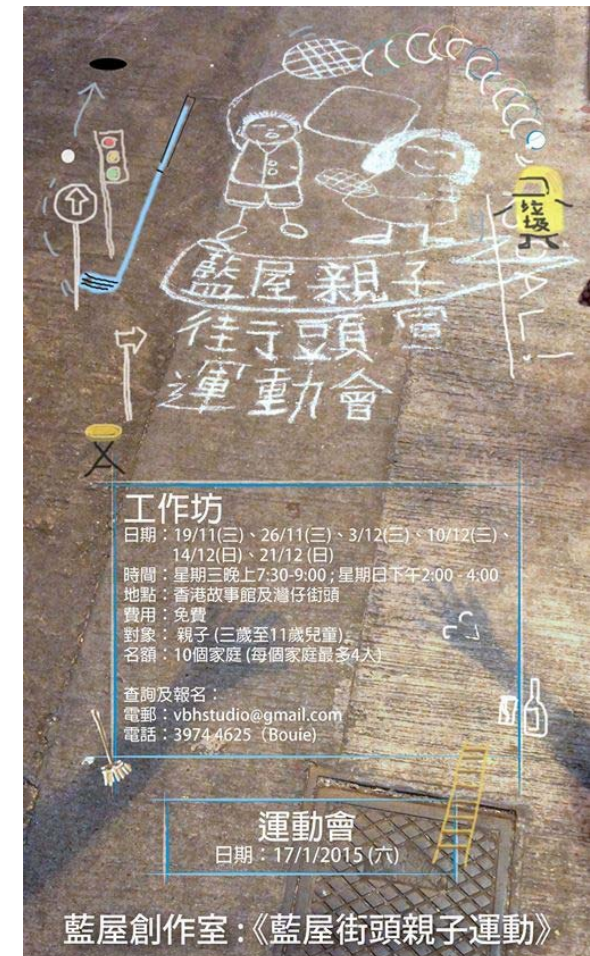 垃圾
藍屋親子
街頭
運動會
工作坊
日期：19/11(三)、26/11(三)、3/12(三)、10/12(三)、
14/12(日)、21/12 (日)
時間：星期三晚上7:30-9:00 ; 星期日下午2:00 - 4:00
地點：香港故事館及灣仔街頭
費用：免費
對象： 親子 (三歲至11歲兒童)
名額：10個家庭 (每個家庭最多4人)
查詢及報名：
電郵：vbhstudio@gmail.com
電話：3974 4625（Bouie)
運動會
日期：17/1/2015 (六)
藍屋創作室 :《藍屋街頭親子運動》